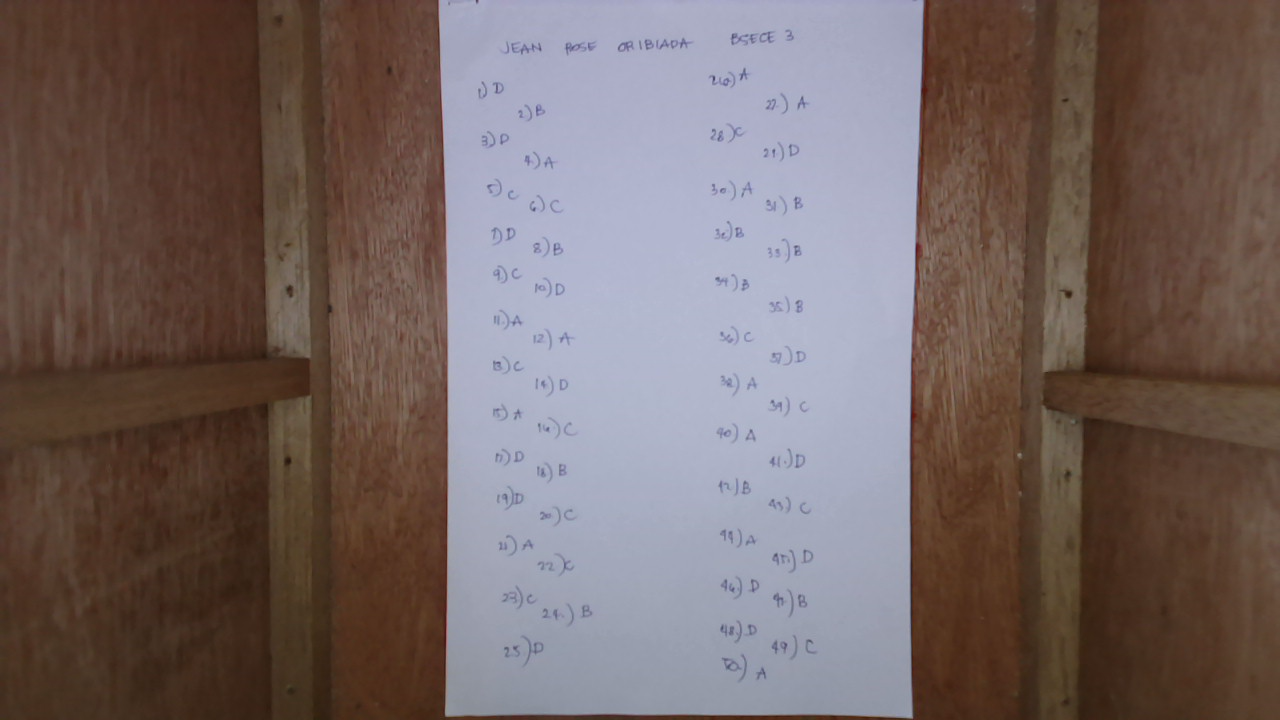 JEAN ROSE ORIBIADA BSECE 3
1) D
2.) B
3) D
4.) A
5) C
6) C
7) D
8) B
9) C
10) D
11.) A
12) A
13) C
14) D
15) A
16) C
17) D
18) B
19) D
20) C
21) A
22) C
23) C
24.) B
25) D
26) A
27.) A
28) C
29.) D
30.) A
31) B
32) B
33.) B
34) B
35.) B
36) C
37.) D
38.) A
39) C
40) A
41.) D
42.) B
43) C
44) A
45.) D
46.) D
47.) B
48.) D
49) C
50.) A